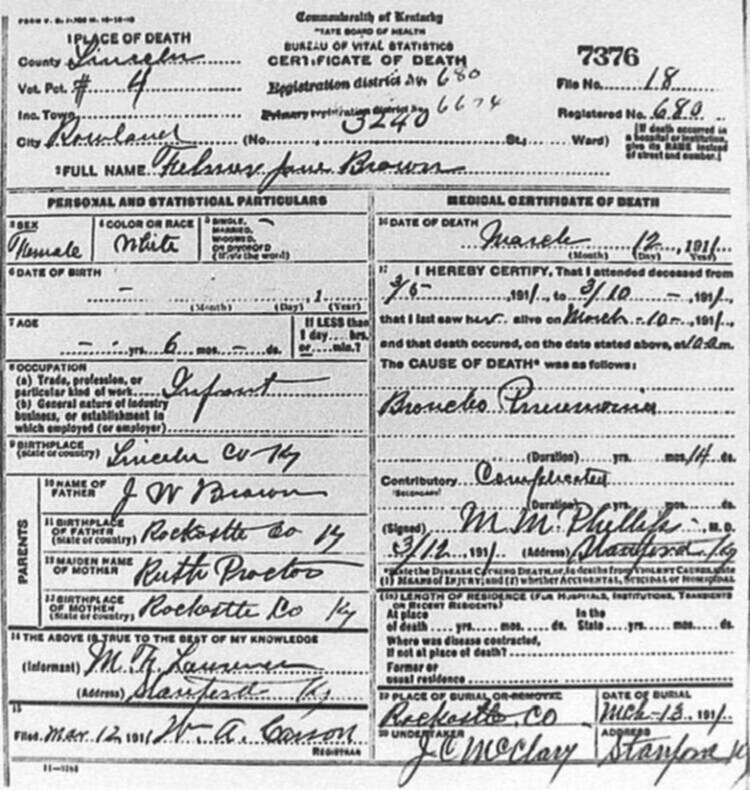 Commonwealth of Kentucky
STATE BOARD OF HEALTH
BUREAU OF VITAL STATISTICS
CERTIFICATE OF DEATH
1 PLACE OF DEATH
County Lincoln
Vot. Pct. # 4
Inc. Town
City Rowland (No. St., Ward)
Registration district No. 680
Primary registration district No. 6674
3240
7376
File No. 18
Registered No. 680
[If death occurred in
a hospital or institution,
give its NAME instead
of street and number.]
2 FULL NAME Jane Brown
PERSONAL AND STATISTICAL PARTICULARS
3 SEX
Female
4 COLOR OR RACE
White
5 SINGLE,
MARRIED,
WIDOWED,
OR DIVORCED
(Write the word)
6 DATE OF BIRTH
- - , 1
(Month) (Day) (Year)
7 AGE
- yrs. 6 mos. - ds.
If LESS than
1 day hrs.
or min.?
8 OCCUPATION
(a) Trade, profession, or
particular kind of work Infant
(b) General nature of industry
business, or establishment in
which employed (or employer)
9 BIRTHPLACE
(State or country) Lincoln Co Ky
PARENTS
10 NAME OF
FATHER J W Brown
11 BIRTHPLACE
OF FATHER
(State or country) Rockastle Co Ky
12 MAIDEN NAME
OF MOTHER Ruth Proctor
13 BIRTHPLACE
OF MOTHER
(State or country) Rockastle Co Ky
14 THE ABOVE IS TRUE TO THE BEST OF MY KNOWLEDGE
(Informant)
(Address) Stanford Ky
15
Filed Mar. 12, 1911 W. A. Carson
REGISTRAR
11-3184
MEDICAL CERTIFICATE OF DEATH
16 DATE OF DEATH
March 12, 1911
(Month) (Day) (Year)
17 I HEREBY CERTIFY, That I attended deceased from
3/5 - , 1911, to 3/10 - , 1911,
that I last saw her alive on March -10-, 1911,
and that death occured, on the date stated above, at 10 a.m.
The CAUSE OF DEATH* was as follows:
Broncho Pneumonia
(Duration) yrs. mos. 14 ds.
Contributory Complicated
(SECONDARY)
(Duration) yrs. mos. ds.
(Signed) M. M. Phillips M. D.
3/12, 1911 (Address) Stanford Ky
*State the DISEASE CAUSING DEATH, or, in deaths from VIOLENT CAUSES, state
(1) MEANS OF INJURY; and (2) whether ACCIDENTAL, SUICIDAL or HOMICIDAL
18 LENGTH OF RESIDENCE (FOR HOSPITALS, INSTITUTIONS, TRANSIENTS
OR RECENT RESIDENTS)
At place In the
of death yrs. mos. ds. State yrs. mos. ds.
Where was disease contracted,
if not at place of death?
Former or
usual residence
19 PLACE OF BURIAL OR REMOVAL
Rockastle, CO
DATE OF BURIAL
Mch-13, 1911
20 UNDERTAKER
J C McClary
ADDRESS
Stanford Ky